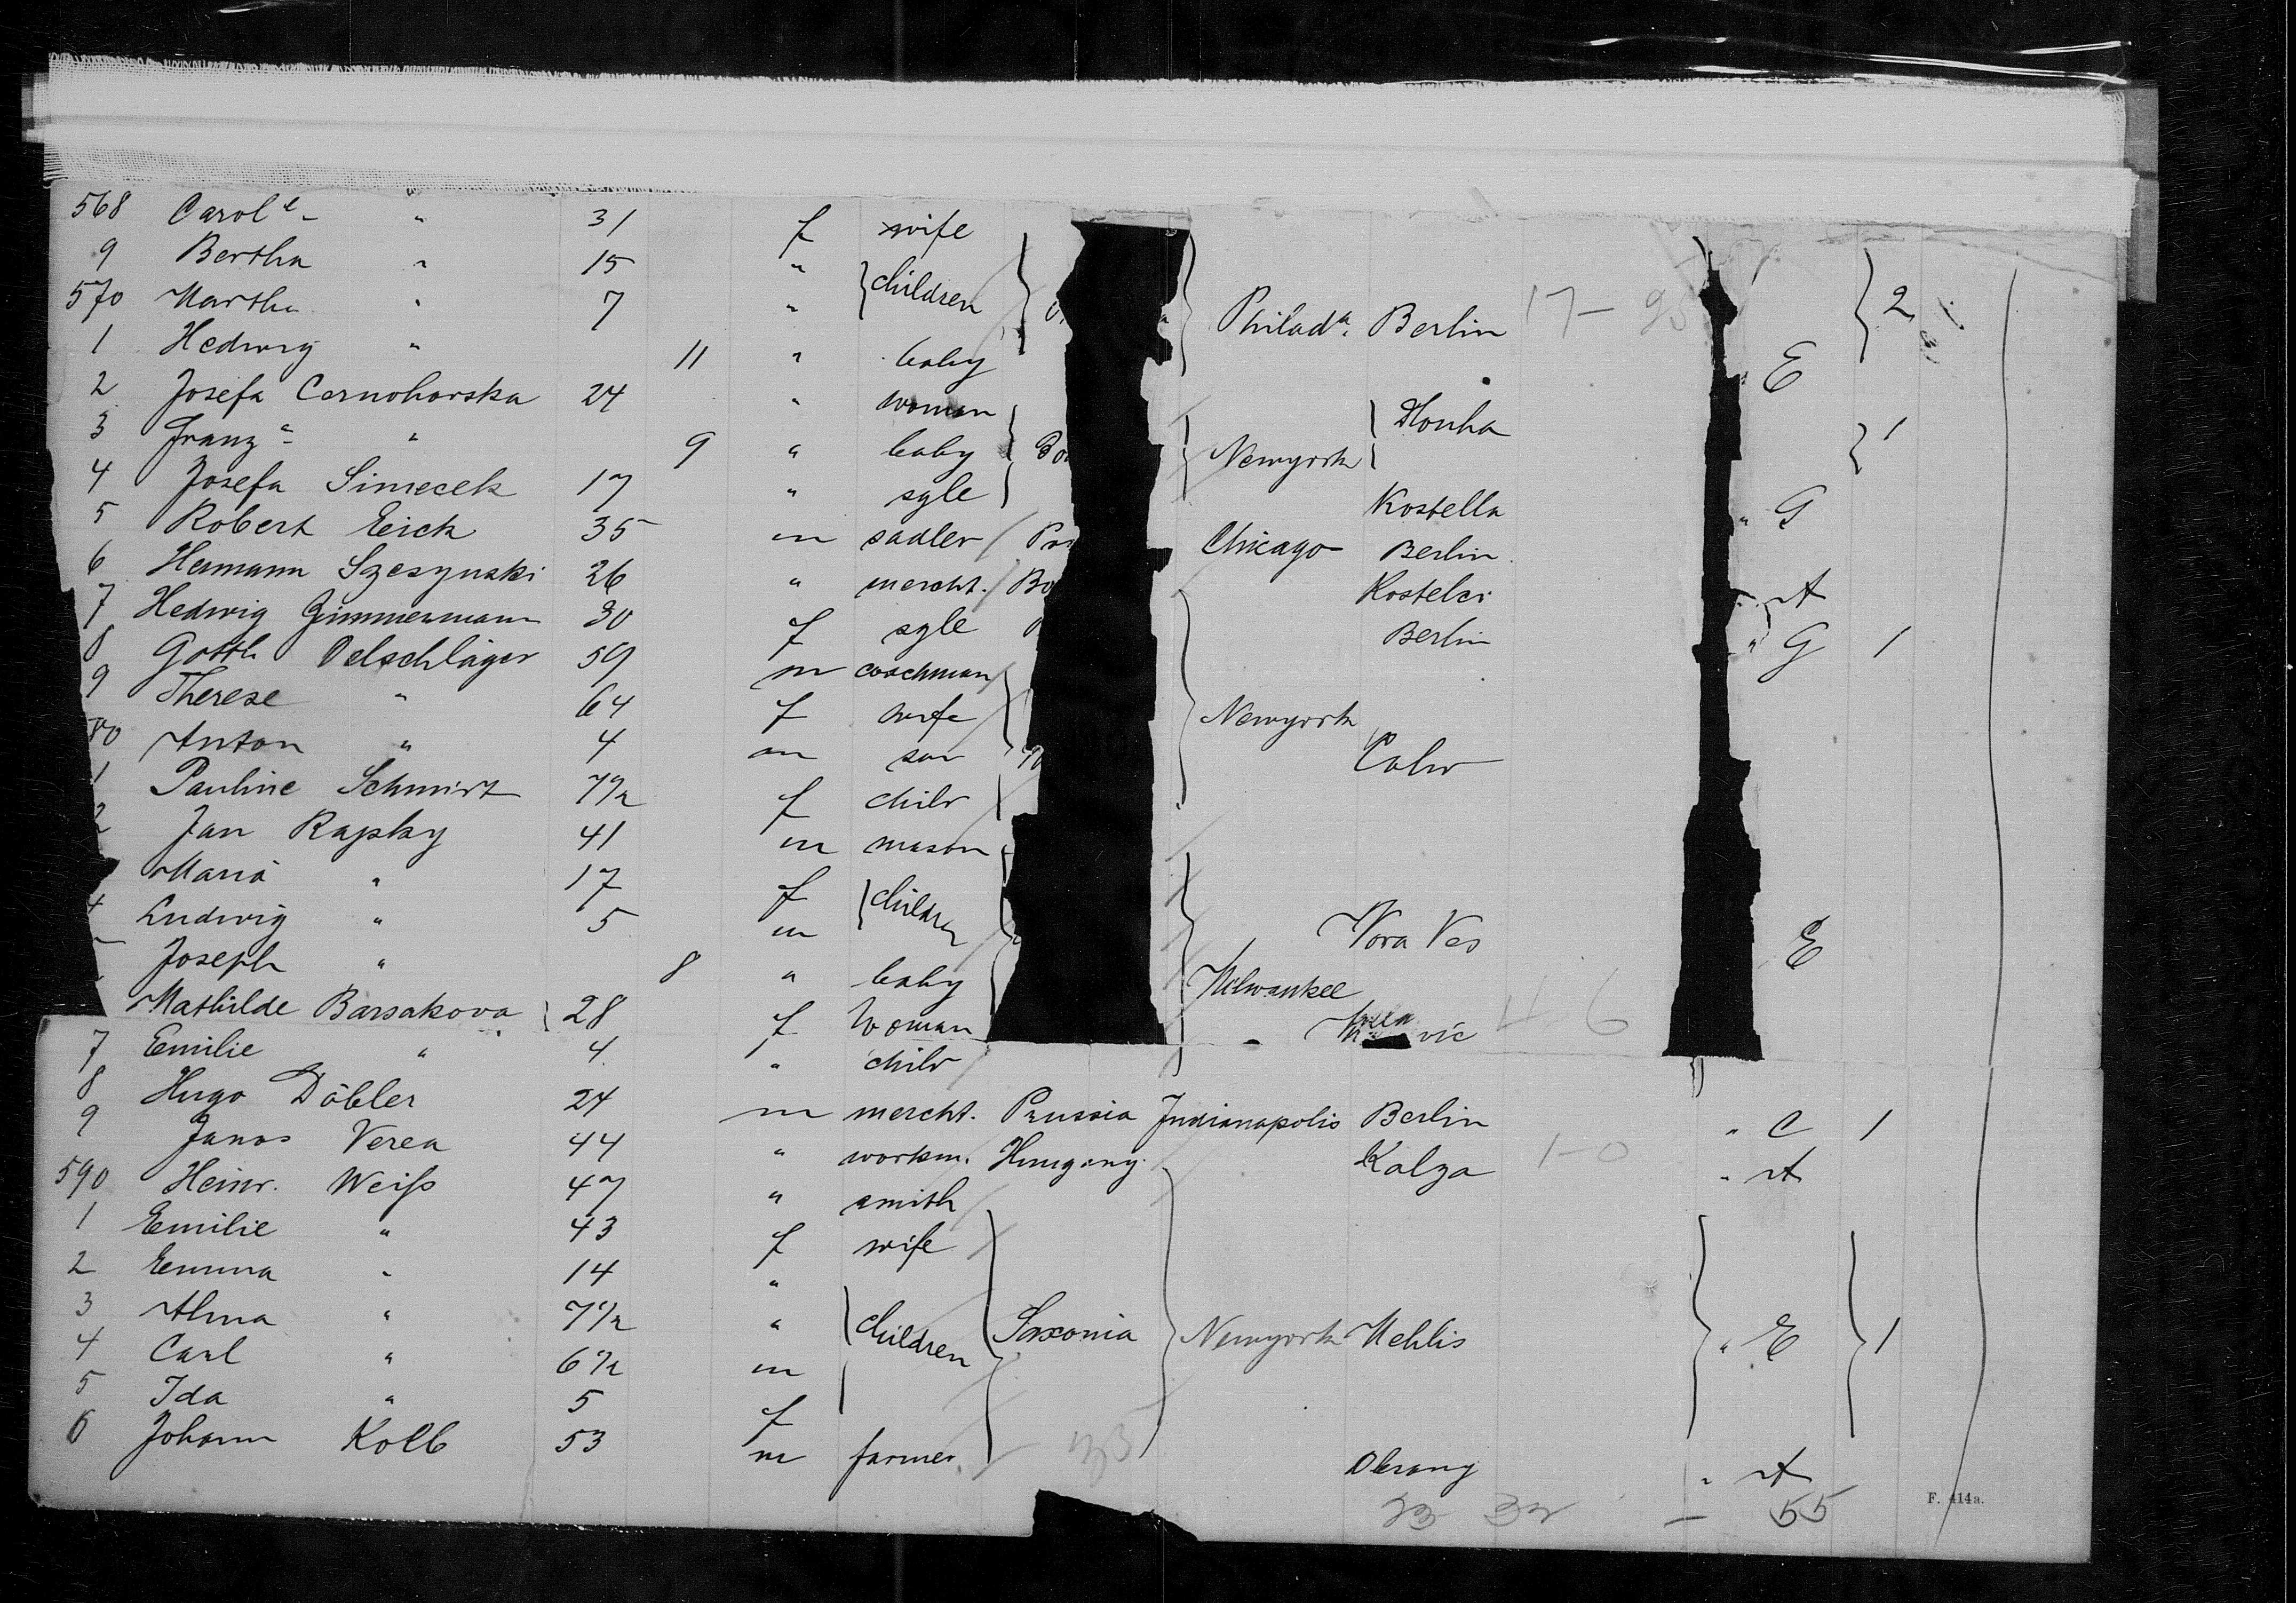 568 Carol^e " 31 f wife
9 Bertha " 15 " children
570 Martha " 7 " Philad^a. Berlin 17 - 2
1 Hedwig " 11 " baby E
2 Josefa Cernohorska 24 " woman Hlouha
3 Franz^a " 9 " baby Newyork 1
4 Josefa Simecek 17 " sgle Kostella " G
5 Robert Eick 35 m sadler Chicago Berlin
6 Hermann Szesynski 26 " mercht. Kostelei " A
7 Hedwig Zimmermann 30 f sgle Berlin " G 1
8 Gottl. Oelschläger 59 m coachman
9 Therese " 64 f wife Newyork
80 Anton " 4 m son Calw
1 Pauline Schmidt 7½ f child
2 Jan Rapsky 41 m mason
Maria " 17 f children
4 Ludwig " 5 m Nova Ves E
Joseph " 8 " baby Milwaukee
Mathilde Barsakova 28 f woman vic 46
7 Emilie " 4 " child
8 Hugo Döbler 24 m mercht. Prussia Indianapolis Berlin " C 1
9 Janos Verea 44 " workm. Hungary Kalza 1-0 " A
590 Heinr. Weiß 47 " smith
1 Emilie " 43 f wife
2 Emma " 14 "
3 Alma " 7½ " children Saxonia Newyork Mehlis " E 1
4 Carl " 6½ m
5 Ida " 5 f
6 Johann Kolb 53 m farmer " A
33 32 - 55
F. 414a.